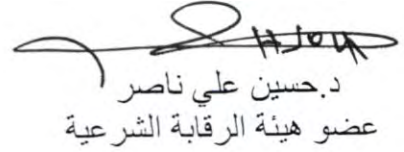 د.حسين علي ناصر
عضو هيئة الرقابة الشرعية